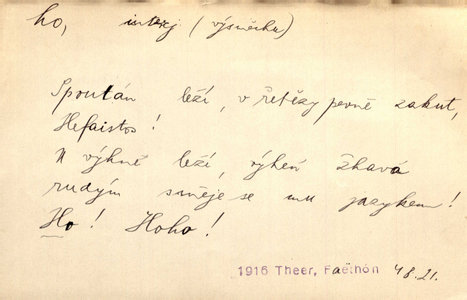 ho, interj (výsměchu)
Spoután leží, v řetězy pevně zakut,
Hefaistos!
U výhně leží, výheň žhavá
rudým směje se mu jazykem!
Ho! Hoho!
1916 Theer, Faëthón 48.21.